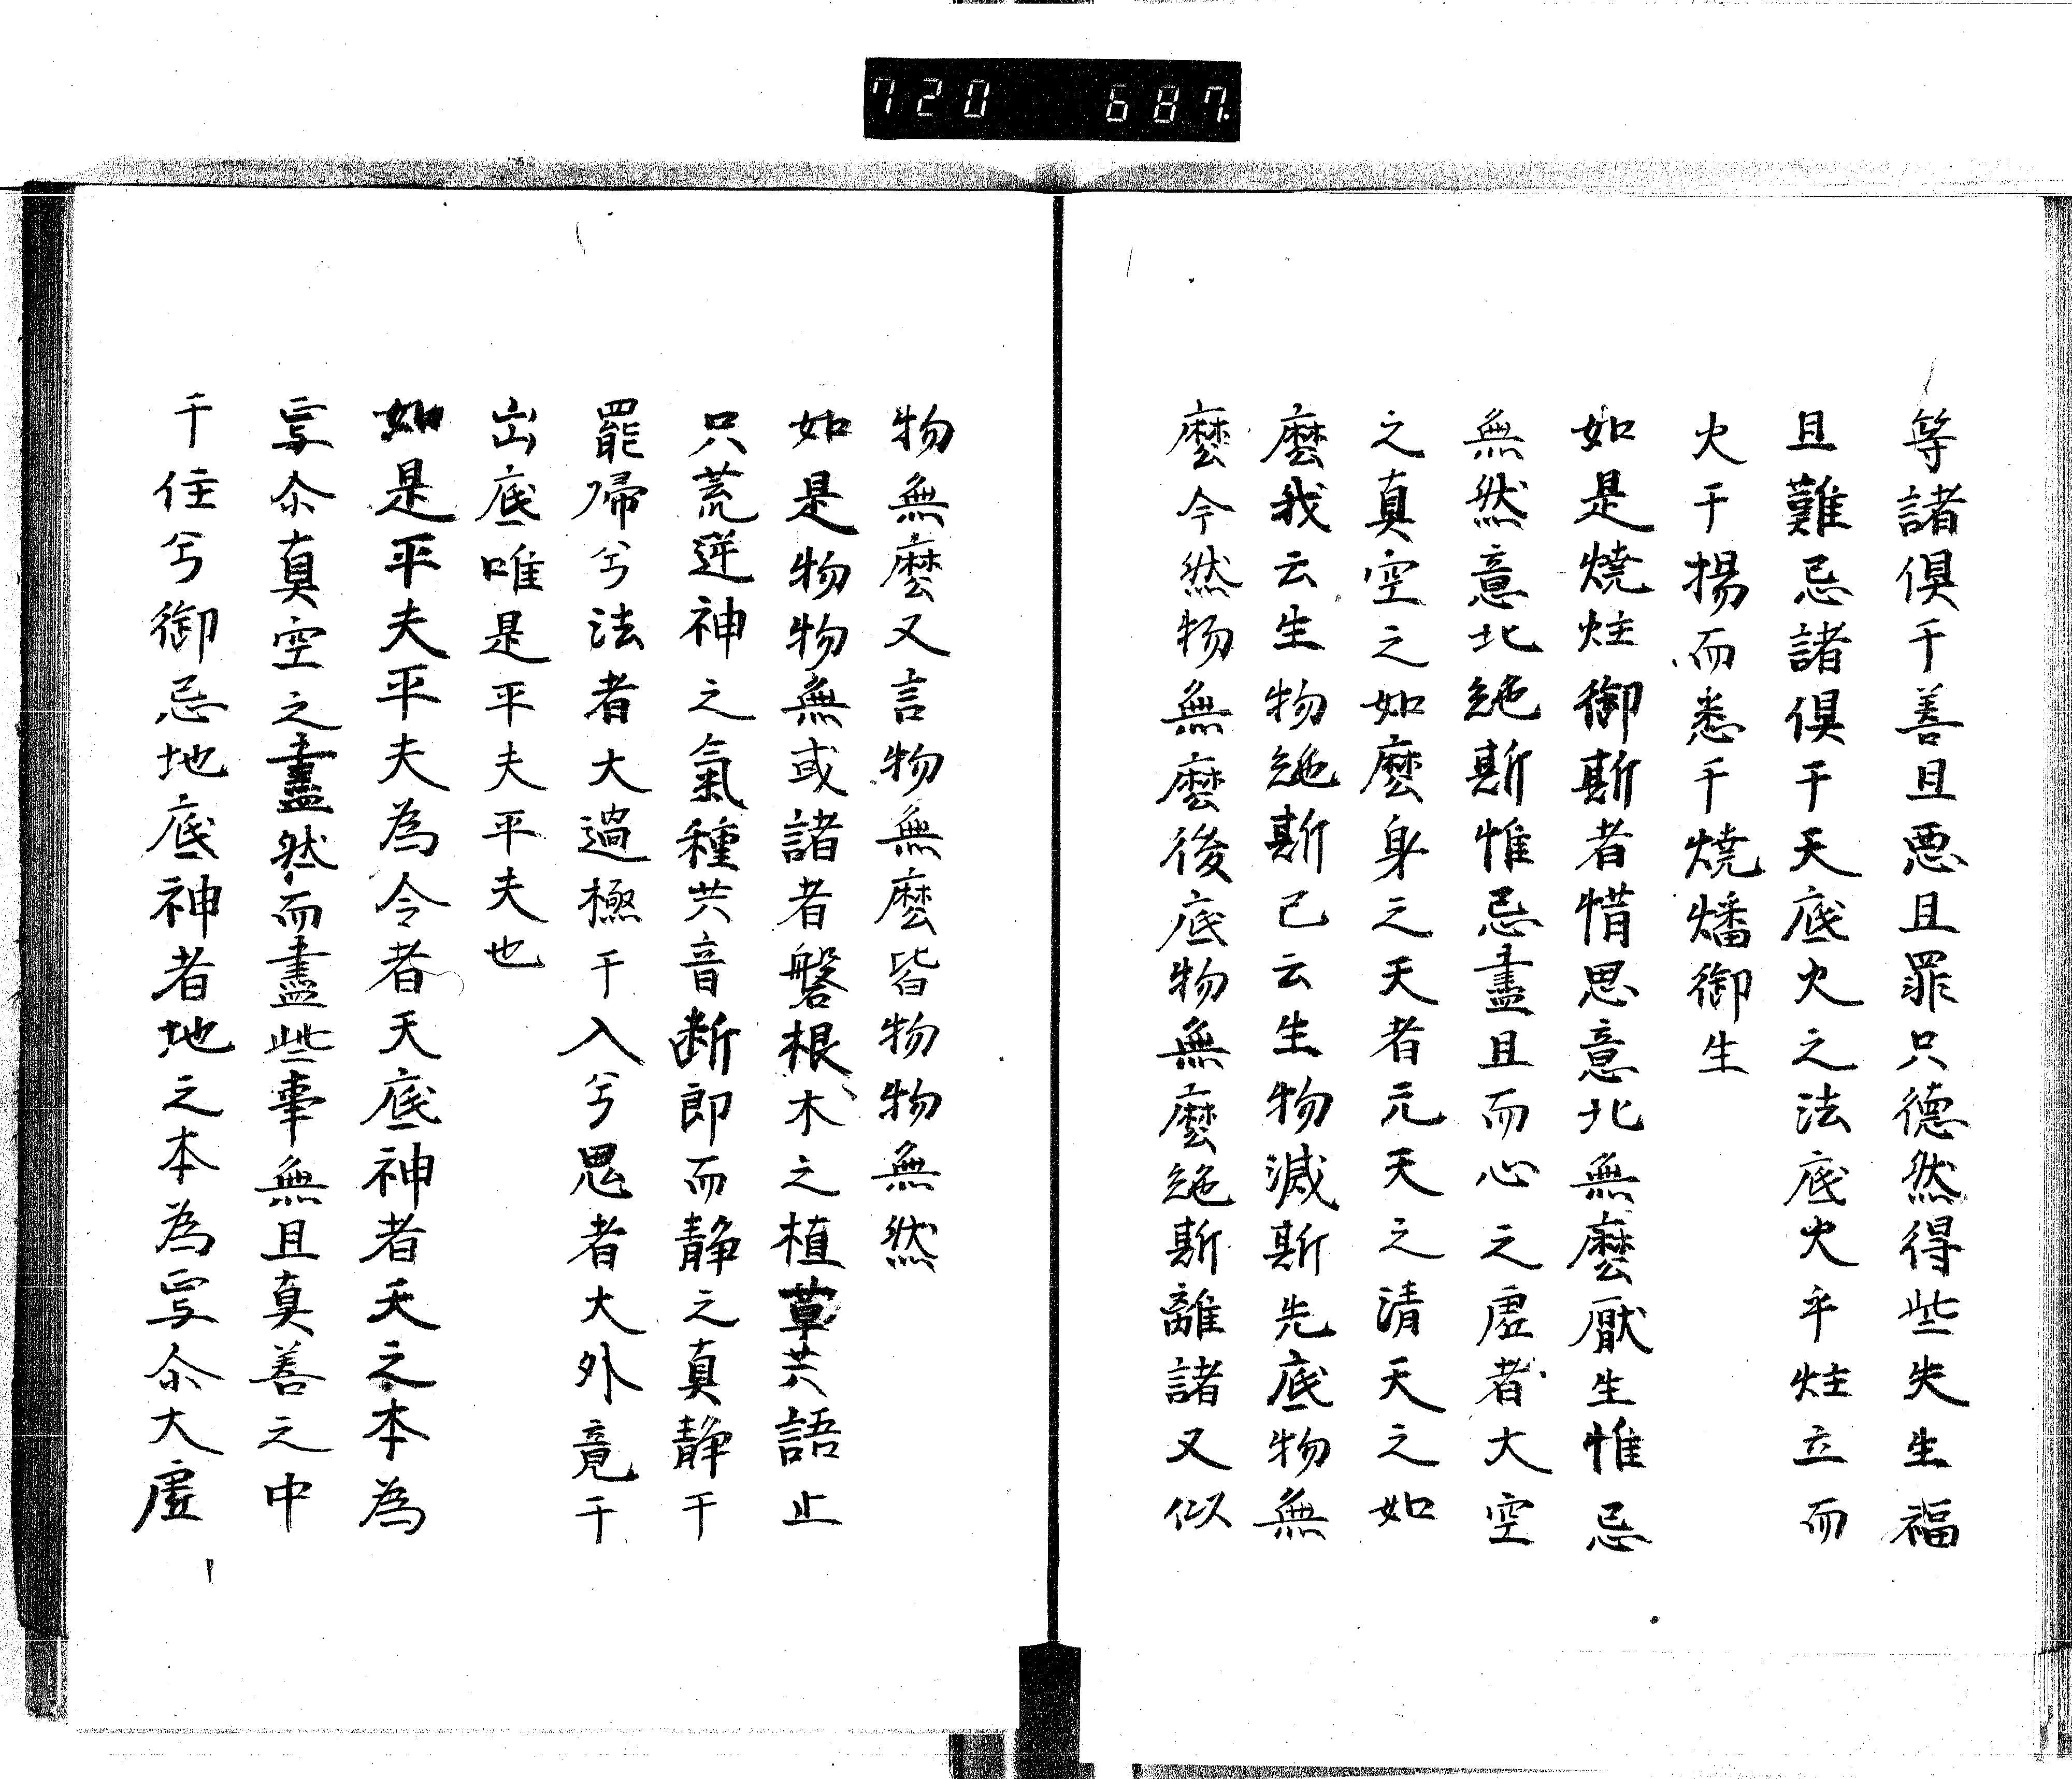 720 687.
等諸倶于善且悪且罪只德然得些失生福
且難忌諸倶于天底火之法底火乎炷立而
火于揚而悉于燒燔御生
如是燒炷御斯者惜思意北無麼厭生惟忌
無然意北絶斯惟忌盡且而心之虚者大空
之真空之如麼身之天者元天之清天之如
麼我云生物絶斯己云生物滅斯先底物無
麼今然物無麼後底物無麼絶斯離諸又似
物無麼又言物無麼皆物物無然
如是物物無或諸者磐根木之植草共語止
只荒逆神之氣種共音断即而静之真静于
罷帰兮法者大過極于入兮思者大外竟于
出底唯是平夫平夫也
如是平夫平夫為令者天底神者天之本為
尒真空之盡然而盡些事無且真善之中
于住兮御忌地底神者地之本為尒大虚